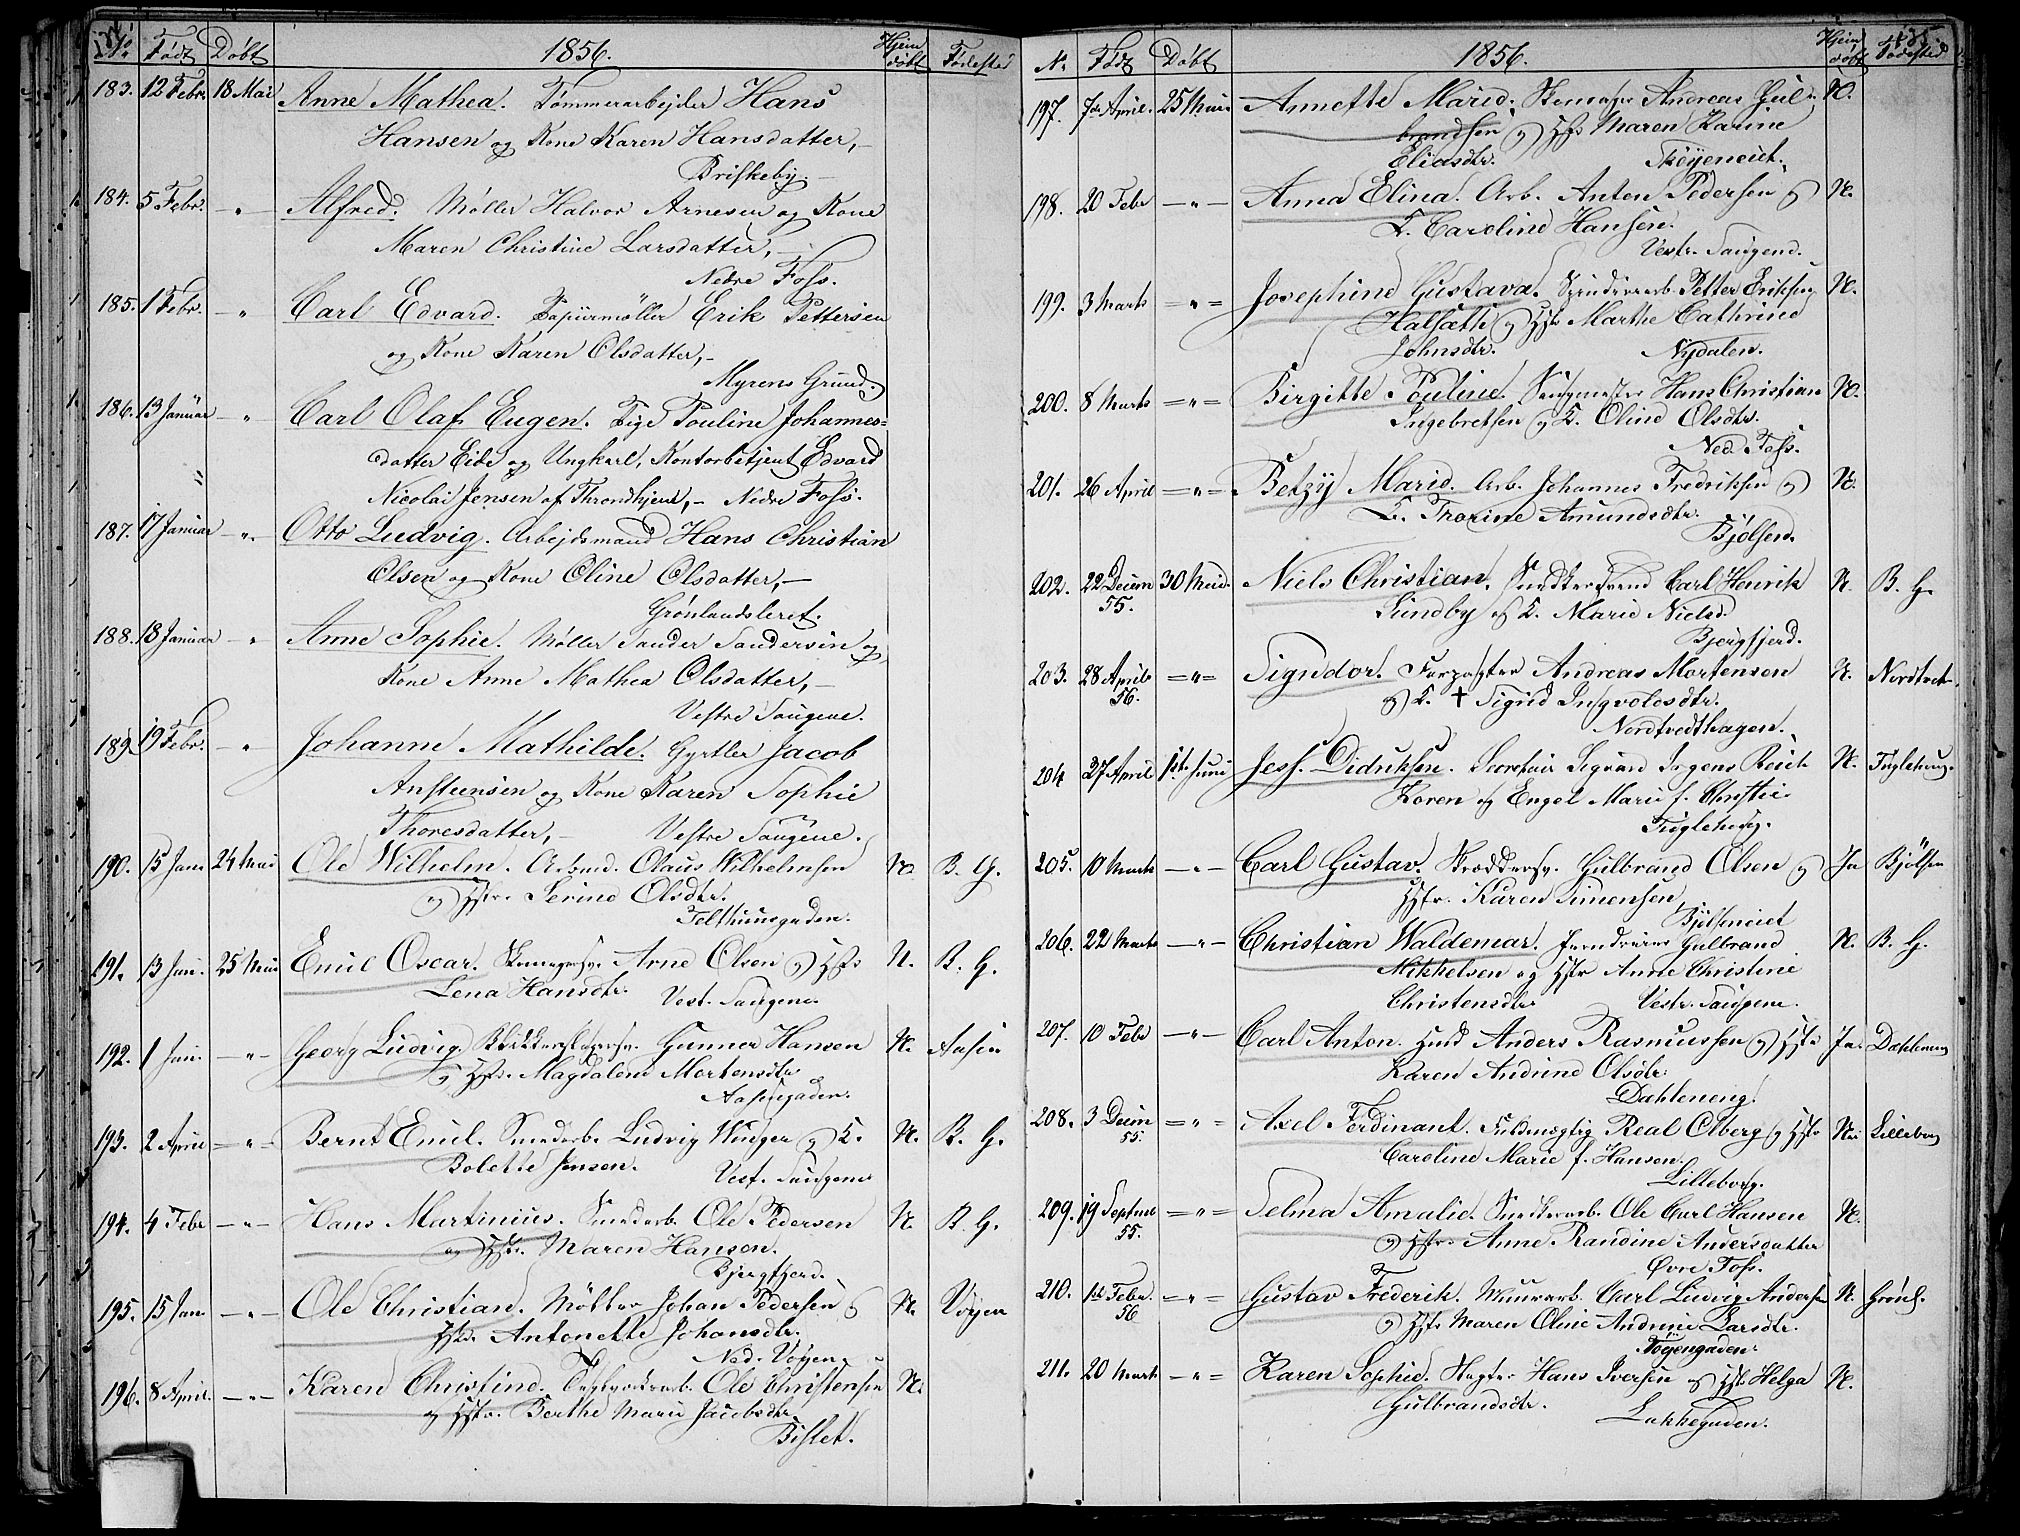 No Født Døbt 1856. Hjem døbt Fødested
183. 12 Febr. 18 Mai Anne Mathea. Tømmerarbejder Hans
Hansen og Kone Karen Hansdatter,
Briskeby.
184. 5 Febr. - " - Alfred. Møller Halvor Arnesen og Kone
Maren Christine Larsdatter,
Nedre Foss.
185. 1 Febr. - " Carl Edvard. Papiirmøller Erik Pettersen
og Kone Karen Olsdatter,
Myrens Grund.
186. 13 Januar - " Carl Olaf Eugen. Pige Pouline Johannes=
datter Eide og Ungkarl, Kontorbetjent Edvard
Nicolai Jensen af Throndhjem, - Nedre Foss.
187. 17 Januar - " - Otto Ludvig. Arbejdsmand Hans Christian
Olsen og Kone Oline Olsdatter, -
Grønlandsleret.
188. 18 Januar - " Anne Sophie. Møller Sander Sandersen og
Kone Anne Mathea Olsdatter, -
Vestre Saugene.
189. 19 Febr. - " Johanne Mathilde. Gyrtler Jacob
Anstensen og Kone Karen Sophie
Thoresdatter, - Vestre Saugene.
190. 15 Jan 24 Mai Ole Wilhelm. Arbmd. Olaus Wilhelmsen N. B. G.
og Hstr. Serine Olsdtr.
Telthuusgaden.
191. 13 Jan. 25 Mai Emil Oscar. Arne Olsen og Hstr N. B. G.
Lena Hansdtr. Vest. Saugene.
192. 1 Jan. - " - Georg Ludvig. Gunner Hansen N. Aasen
og Hstr. Magdalene Mortensdtr
Aasengaden.
193. 2 April - " - Bernt Emil. Smedarb. Ludvig Winger og K. N. B. G.
Bolette Jensen. Vest. Saugene
194. 4 Febr - " - Hans Martinius. Smedarb. Ole Pedersen N. B. G.
og Hstr. Maren Hansen.
Bjergfjerd.
195. 15 Jan. - " - Ole Christian. Møller Johan Pedersen og N. Vøyen
Hstr. Antonette Johansdtr.
Ned. Vøyen.
196. 8 April. - " - Karen Christine. Ole Christensen N.
og Hstr. Berthe Marie Jacobsdtr.
Bislet.
No Født Døbt 1856. Hjem døbt Fødested
197. 7de April. 25 Mai Annette Marie. Andreas Gul= N.
brandsen og Hstr Maren Karine
Eliasdtr. Tøyeneiet.
198. 20 Febr - " - Anna Elina. Arb. Anton Pedersen og N.
K. Caroline Hansen.
Vestr. Saugene.
199. 3 Marts = " = Josephine Gustava. Spinderarb. Petter Eriksen N.
Halsæth og Hstr Marthe Cathrine
Johnsdtr. Nydalen.
200. 8 Marts = " = Birgitte Pouline. Saugmester Hans Christian N.
Ingebretsen og K. Oline Olsdtr.
Ned. Foss.
201. 26 April = " = Betzy Marie. Arb. Johannes Fredriksen og N.
K. Thorine Amundsdtr.
Bjølsen.
202. 22 Decem 55. 30 Mai Niels Christian. Snedkersvend Carl Henrik N. B. G.
Sundby og K. Marie Nielsd.
Bjergfjerd.
203. 28 April 56. = " = Signdor. Forpagter Andreas Mortensen N. Nordtvet.
og K. † Sigrid Ingvoldsdtr.
Nordtvedthagen.
204 27 April 1st. Juni Jess. Didriksen. Secretair Sigvard Reich N. Tuglehaug.
Koren og Engel Marie f. Christie
Tuglehaug.
205. 10 Marts - " - Carl Gustav. Skræddersv. Gulbrand Olsen og Ja Bjølsen
Hstr. Karen Simensen
Bjølseneiet
206. 22 Marts - " - Christian Waldemar. Jerndreier Gulbrand N. B. G.
Mikkelsen og Hstr Anne Christine
Christensdtr Vestr. Saugene.
207. 10 Febr - " - Carl Anton. Anders Rasmussen og Hstr Ja. Dahleneng
Karen Andine Olsdtr.
Dahleneng.
208. 3 Decem 55. = " = Axel Ferdinant. Fuldmægtig Real Olberg og Hstr Nei Lilleborg
Caroline Marie f. Hansen.
Lilleborg.
209. 19 Septmbr 55. = " = Selma Amalie. Snedkerarb. Ole Carl Hansen N.
og Hstr. Anne Randine Andersdatter
Øvre Foss.
210. 1st Febr. 56 = " = Gustav Frederik. Muurarb. Carl Ludvig Andersen N. Grønl.
og Hstr Maren Oline Andrine Larsdtr.
Tøyengaden.
211. 20 Marts - " = Karen Sophie. Hans Iversen og Hstr Helga N.
Gulbrandsdtr.
Lakkegaden.